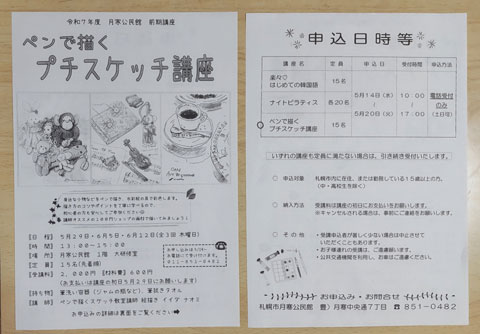 令和7年度 月寒公民館 前期講座
ペンで描く
プチスケッチ講座
【日 程】 5月29日・6月5日・6月12日(全3回 木曜日)
【時 間】 13:00~15:00
【場 所】 月寒公民館 1階 大研修室
【定 員】 15名(先着順)
【受講料】 2,000円 【材料費】 600円
(お支払いは講座の初日5月29日にお願いします)
【持ち物】 筆洗い容器(ジャムの瓶など)、筆拭きタオル
【講 師】 ペンで描くスケッチ教室講師 絵描き イイダ ナオミ
お申込みの詳細は裏面をご覧ください
申込日時等
講座名 定員 申込日 受付時間 申込方法
楽々♡
はじめての韓国語 15名
ナイトピラティス 各20名
ペンで描く
プチスケッチ講座 15名
5月14日(水)
5月20日(火)
10:00
17:00
電話受付
のみ
(土日可)
いずれの講座も定員に満たない場合は、引き続き受付いたします。
○ 申込対象 札幌市内に在住、または勤務している15歳以上の方。
(中・高校生を除く)
○ 納入方法 受講料は講座の初日にお支払いをお願いします。
※キャンセルされる場合は、事前にご連絡をお願いします。
○ その他 ・受講申込者が著しく少ない場合は中止させて
いただくこともあります。
・お子様連れの受講は、ご遠慮願います。
・公共交通機関を利用し、お車はご遠慮ください。
お申込み・お問合せ
札幌市月寒公民館 豊)月寒中央通7丁目 ☎851-0482